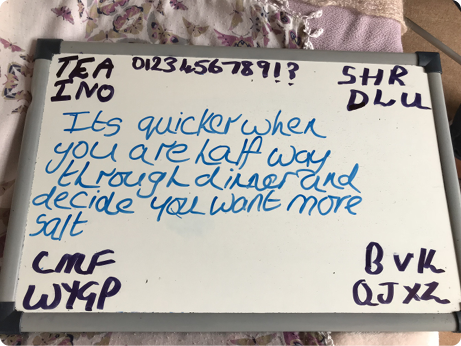 TEA 0123456789!? SHR
INO DLU
Its quicker when
you are half way
through dinner and
decide you want more
salt
CMF BVK
WYGP QJXZ